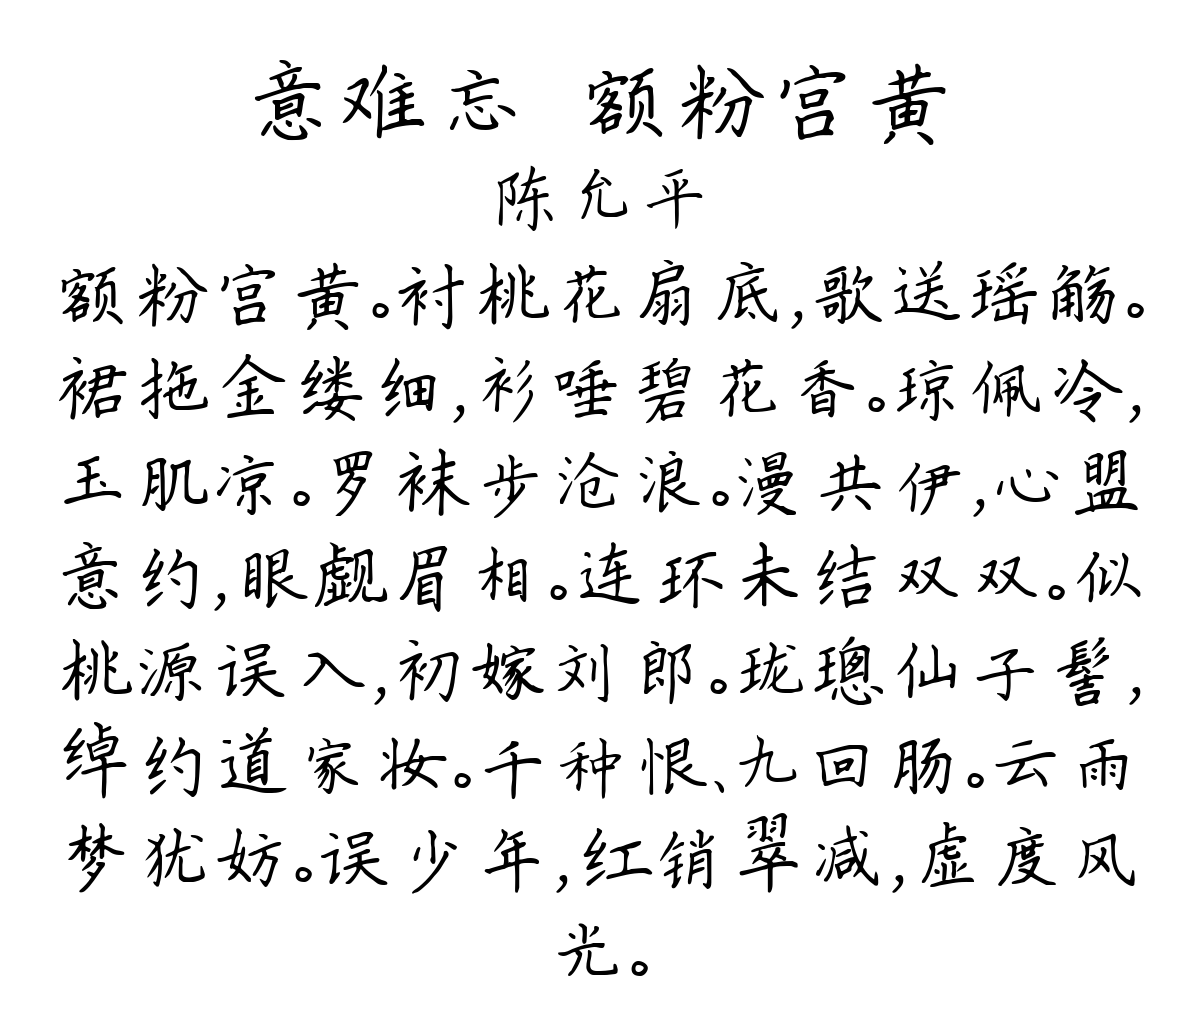 意难忘 额粉宫黄
陈允平
额粉宫黄。衬桃花扇底,歌送瑶觞。
裙拖金缕细,衫唾碧花香。琼佩冷,
玉肌凉。罗袜步沧浪。漫共伊,心盟
意约,眼觑眉相。连环未结双双。似
桃源误入,初嫁刘郎。珑璁仙子髻,
绰约道家妆。千种恨、九回肠。云雨
梦犹妨。误少年,红销翠减,虚度风
光。